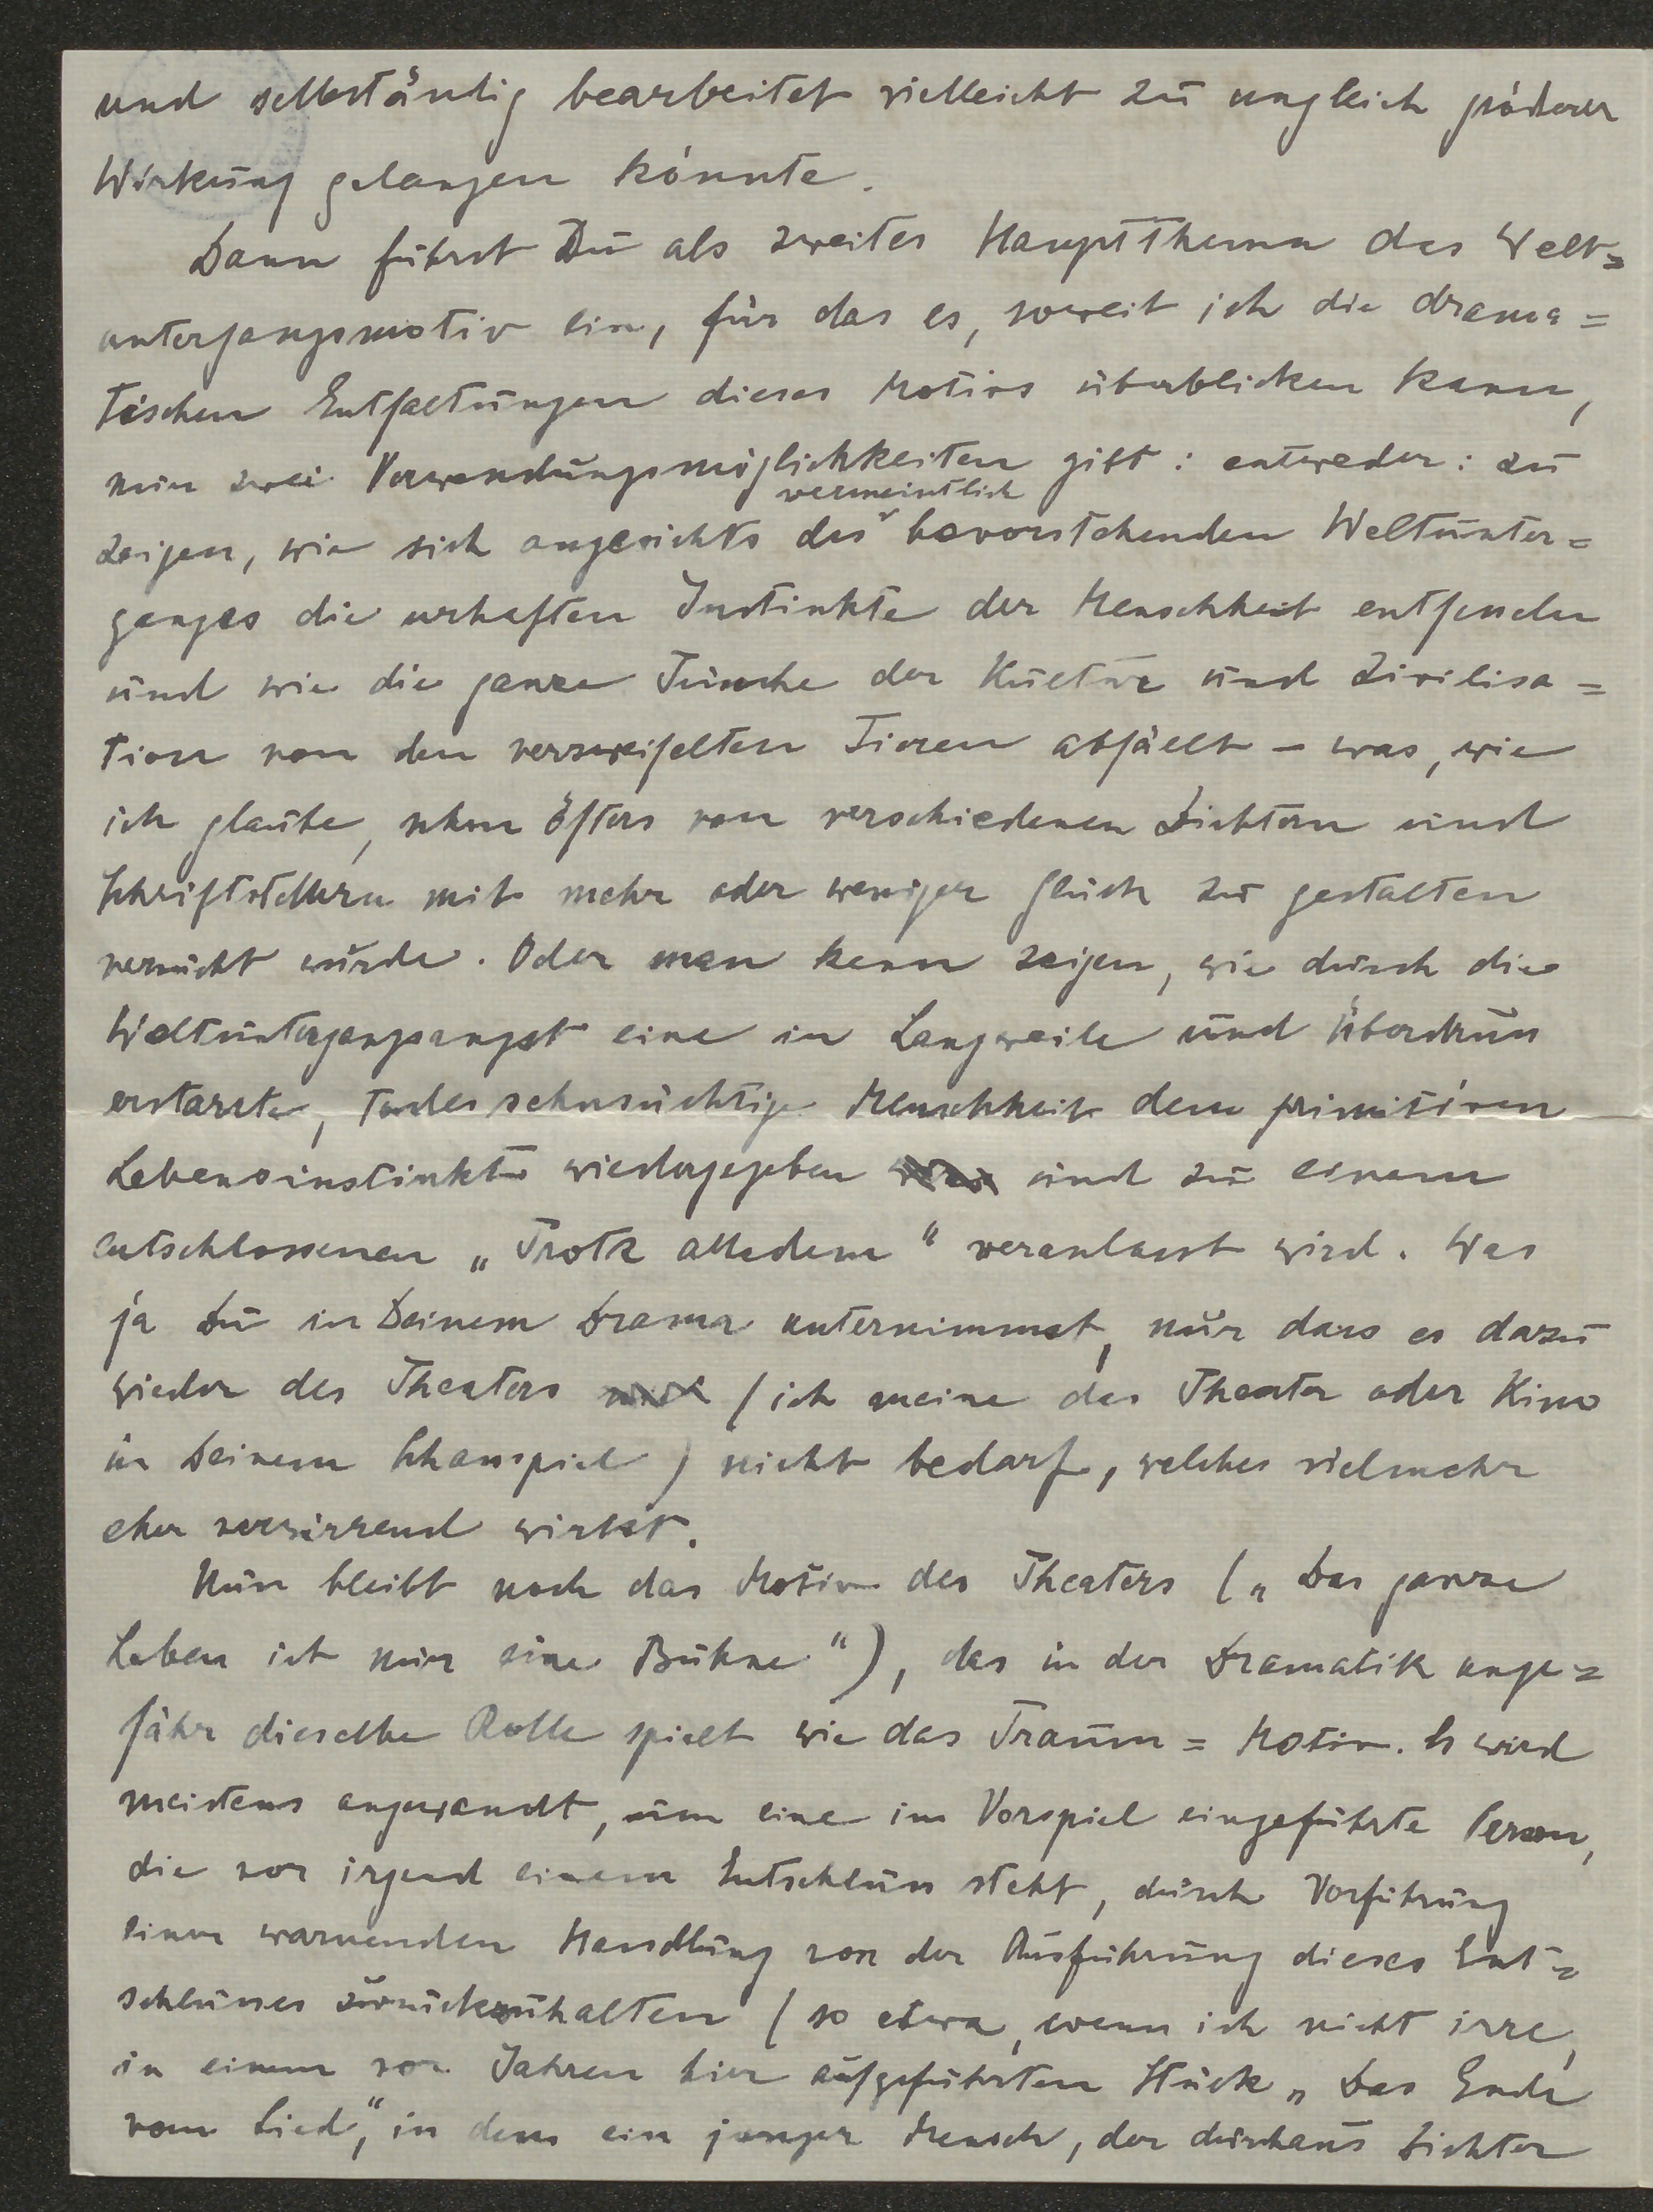 und selbständig bearbeitet vielleicht zu ungleich größerer
Wirkung gelangen könnte.
Dann führst Du als zweites Hauptthema das Welt=
untergangsmotiv ein, für das es, soweit ich die drama=
tischen Entfaltungen dieses Motivs überblicken kann,
nur zwei Verwendungsmöglichkeiten gibt: entweder: zu
vermeintlich
zeigen, wie sich angesichts des bevorstehenden Weltunter=
ganges die urhaften Instinkte der Menschheit entfesseln
und wie die ganze Tünche der Kultur und Zivilisa=
tion von den verzweifelten Tieren abfällt – was, wie
ich glaube, schon öfters von verschiedenen Dichtern und
Schriftstellern mit mehr oder weniger Glück zu gestalten
versucht wurde. Oder man kann zeigen, wie durch die
Weltuntergangsangst eine in Langweile und Überdruss
erstarrte, todessehnsüchtige Menschheit dem primitiven
Lebensinstinkte wiedergegeben und zu einem
entschlossenen „Trotz alledem“ veranlasst wird. Was
ja Du in Deinem Drama unternimmst, nur dass es dazu
wieder des Theaters (ich meine das Theater oder Kino
in Deinem Schauspiel) nicht bedarf, welches vielmehr
eher verwirrend wirkt.
Nun bleibt noch das Motiv des Theaters („Das ganze
Leben ist nur eine Bühne“), das in der Dramatik unge=
fähr dieselbe Rolle spielt wie das Traum=Motiv. Es wird
meistens angewandt, um eine im Vorspiel eingeführte Person,
die vor irgend einem Entschluss steht, durch Vorführung
einer warnenden Handlung von der Ausführung dieses Ent=
schlusses zurückzuhalten (so etwa, wenn ich nicht irre,
in einem vor Jahren hier aufgeführten Stück „Das Ende
vom Lied“, in dem ein junger Mensch, der durchaus Dichter